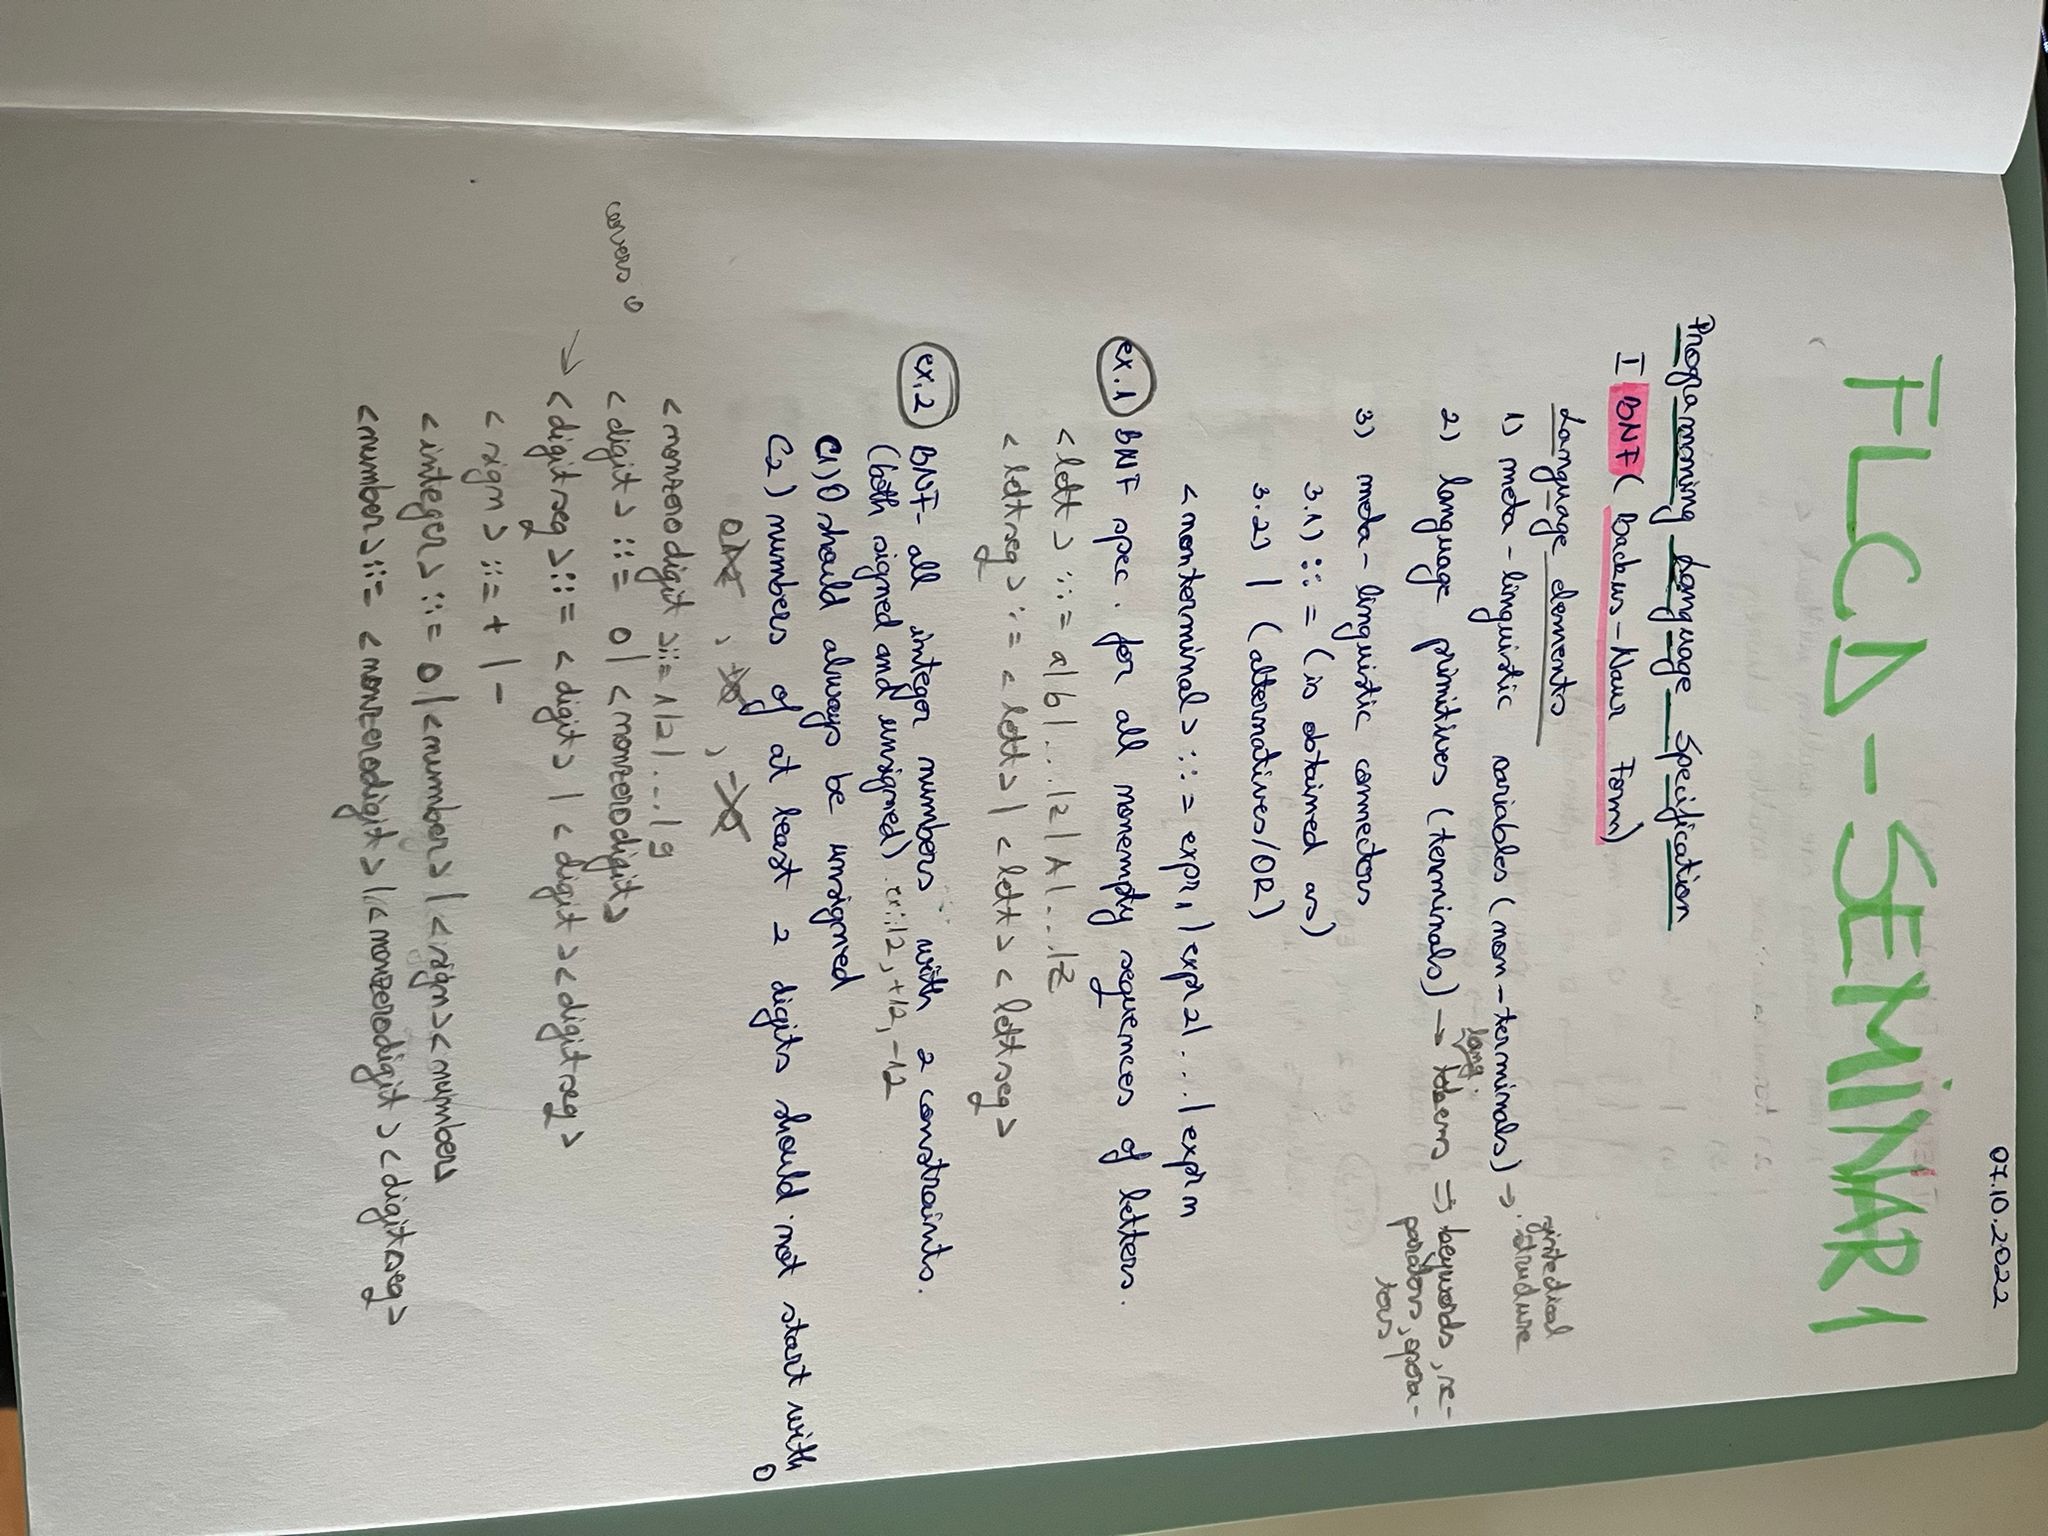 07.10.2022
FLCD - SEMINAR 1
Programming Language Specification
I BNF (Backus-Naur Form)
Language elements
1) meta-linguistic variables (non-terminals) → sintectical structure
2) language primitives (terminals) → lang. tokens => keywords, se-
parators, opera-
tors
3) meta-linguistic connectors
3.1) ::= (is obtained as)
3.2) | (alternatives/OR)
<nonterminal> ::= expr1 | expr2 | ... | expr n
ex.1 BNF spec. for all nonempty sequences of letters.
<lett> ::= a|b|...|z|A|...|Z
<lettseq> := <lett> | <lett><lettseq>
ex.2 BNF- all integer numbers with 2 constraints.
(both signed and unsigned) ex: 12, +12, -12
C1) 0 should always be unsigned
C2) numbers of at least 2 digits should not start with
0
012, +0, -0
<nonzerodigit> ::= 1|2|...|9
covers 0
<digit> ::= 0 | <nonzerodigit>
→ <digitseq> ::= <digit> | <digit><digitseq>
<sign> ::= + | -
<integer> ::= 0 | <number> | <sign><number>
<number> ::= <nonzerodigit> | <nonzerodigit><digitseq>